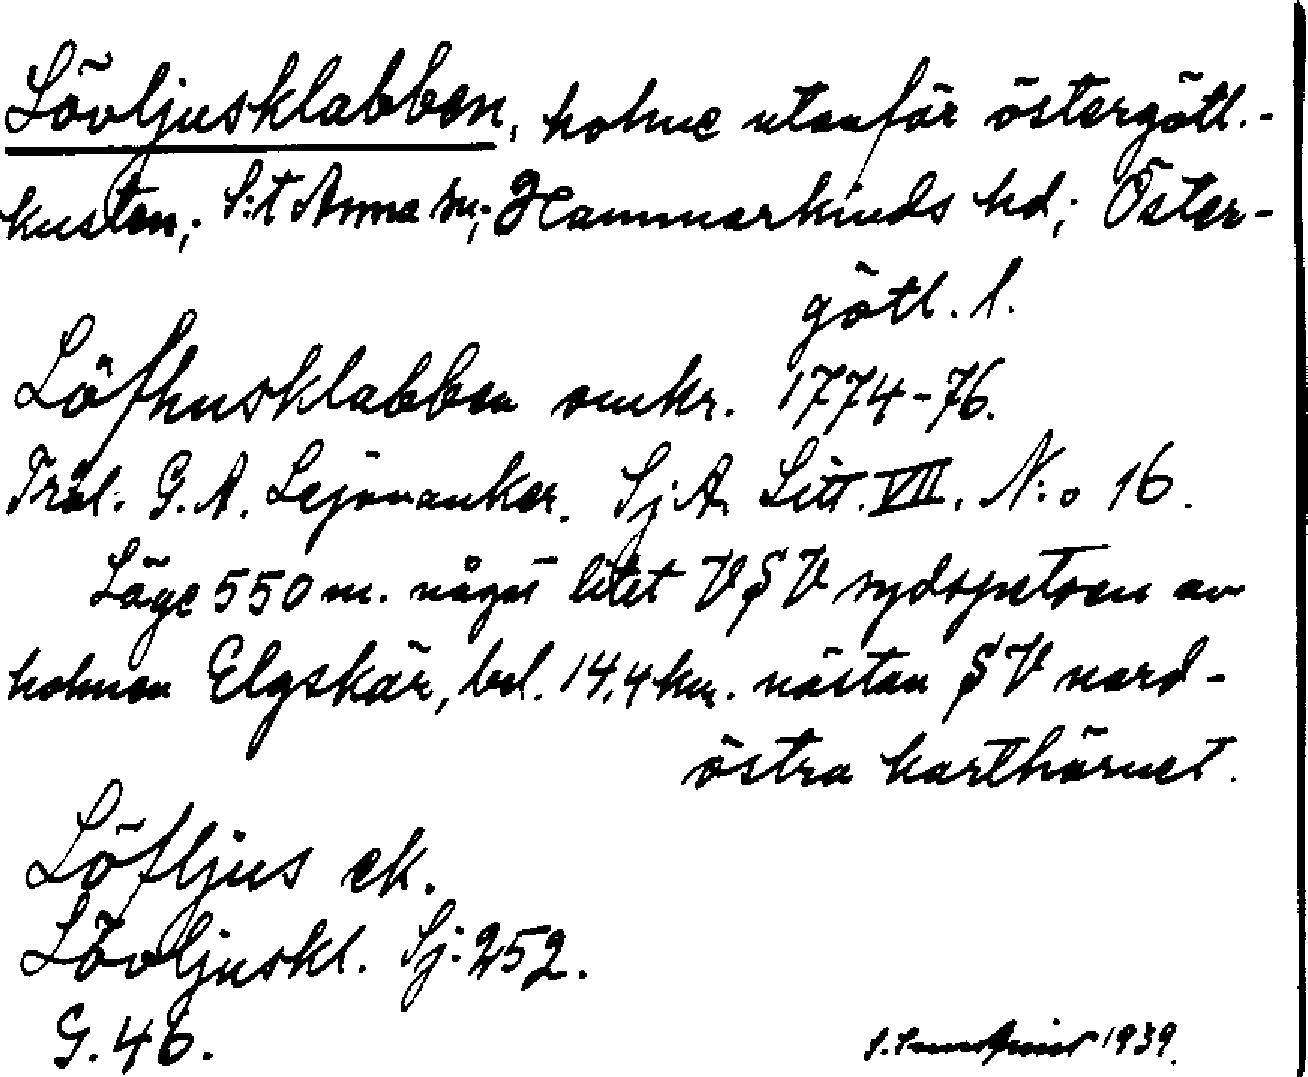 Lövljusklabben, holme utanför östergötl.-
kusten; S:t Anna sn; Hammarkinds hd; Öster-
götl. l.
Löfhusklabben omkr. 1774-76.
Trol. G. A. Lejonanker. Sj.A. Litt. VII. N:o 16.
Läge 550 m. något litet V S V sydspetsen av
holmen Elgskär, bel. 14,4 km. nästan S V nord-
östra karthörnet.
Löfljus ek.
Lövljuskl. Sj. 252.
G. 46.
1939.